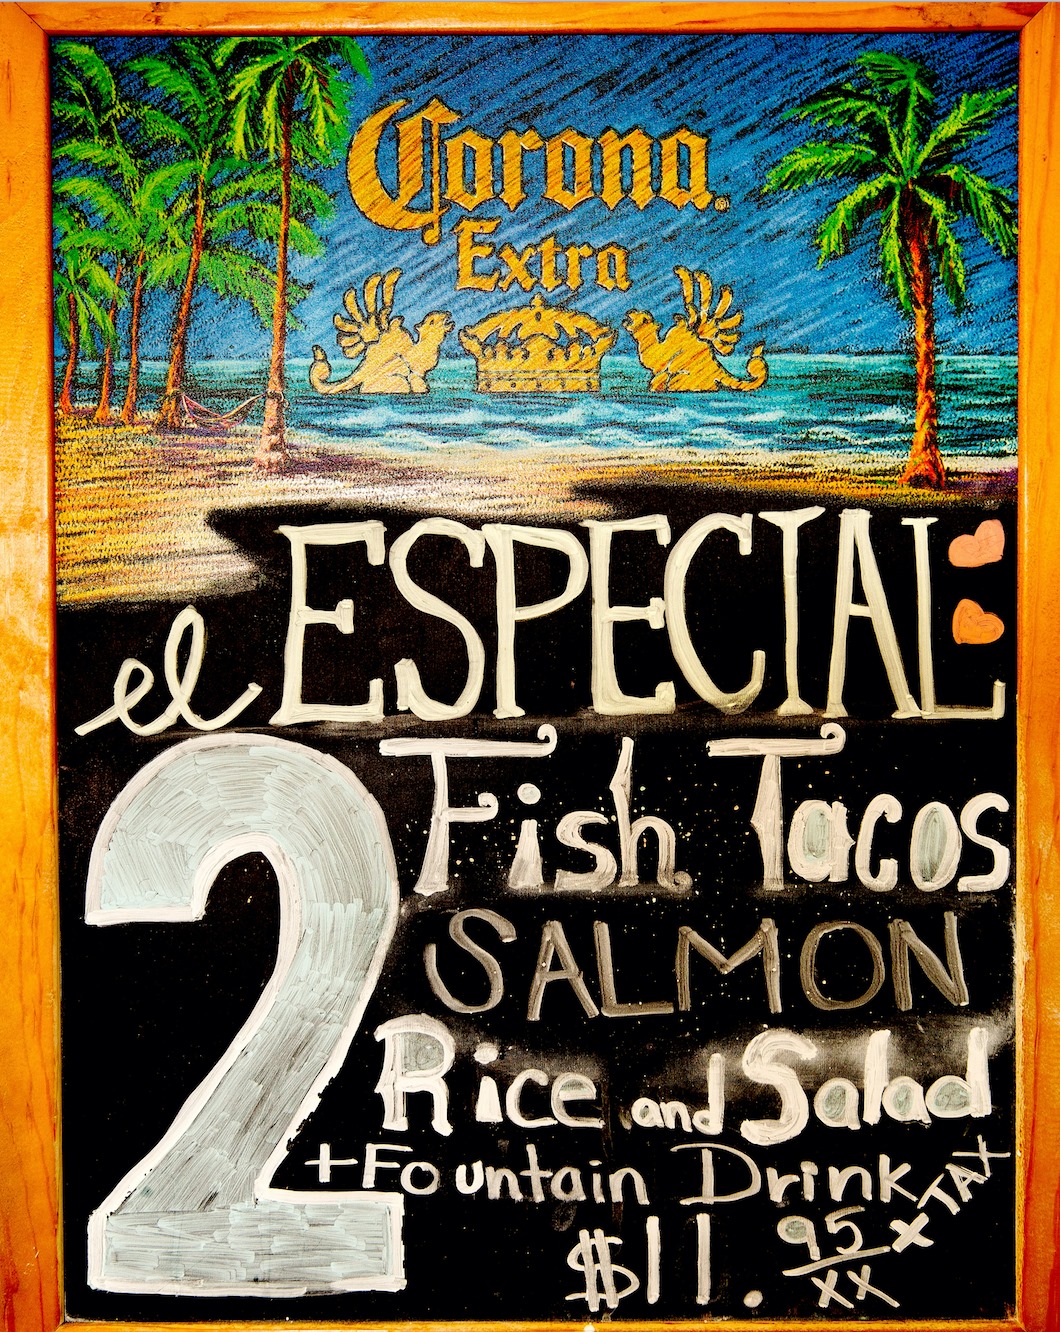 Corona®
Extra
el ESPECIAL:
2 Fish Tacos
SALMON
Rice and Salad
+ Fountain Drink
x TAX
$11.95
xx